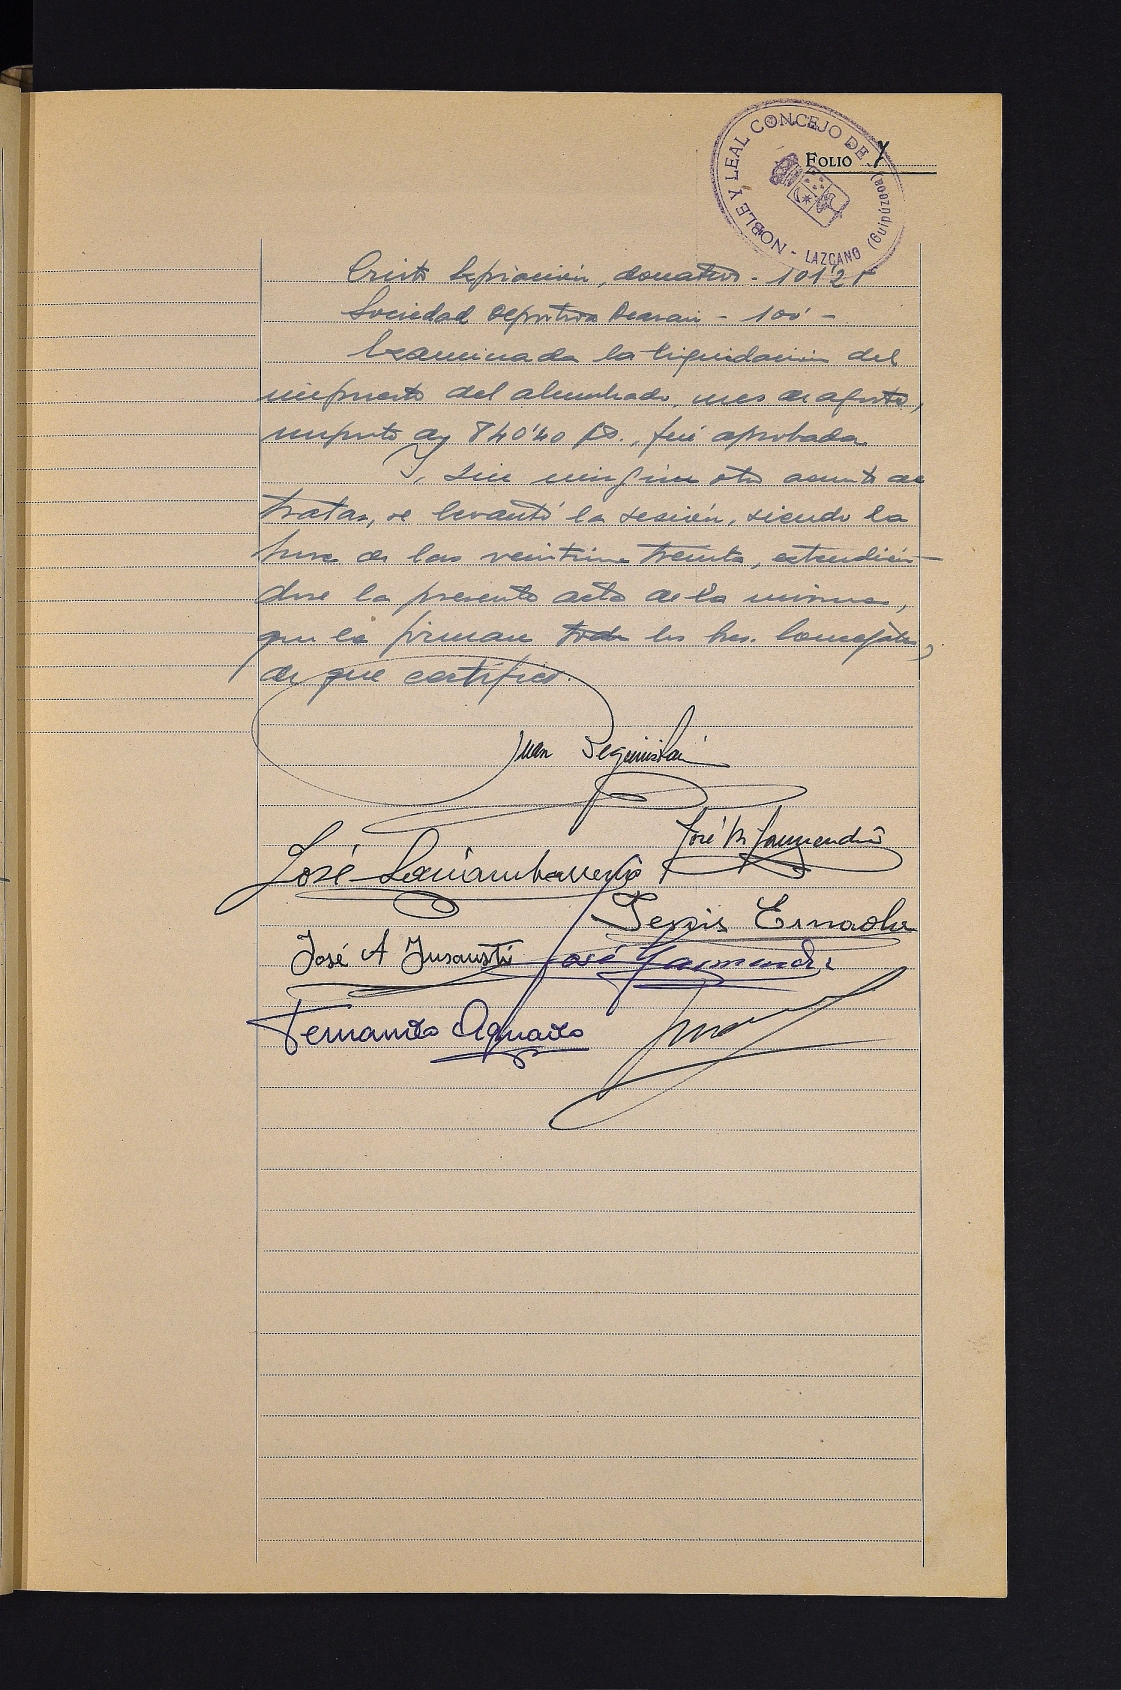 NOBLE Y LEAL CONCEJO DE - LAZCANO (Guipúzcoa)
FOLIO
Cristo Expiación, donativo - 101'25
Sociedad Deportiva Beasain - 100' -
Examinada la liquidación del
impuesto del alumbrado, mes de agosto,
importe de 840'40 pts., fué aprobada.
Y, sin ningún otro asunto de
tratar, se levantó la sesión, siendo la
hora de las veintiuna treinta, extendién-
dose la presente acta de la misma,
que la firman todos los Sres. Concejales,
de que certifico.
Juan
José
José M. Garmendia
José A Insausti
José Garmendia
Fernando Aguado